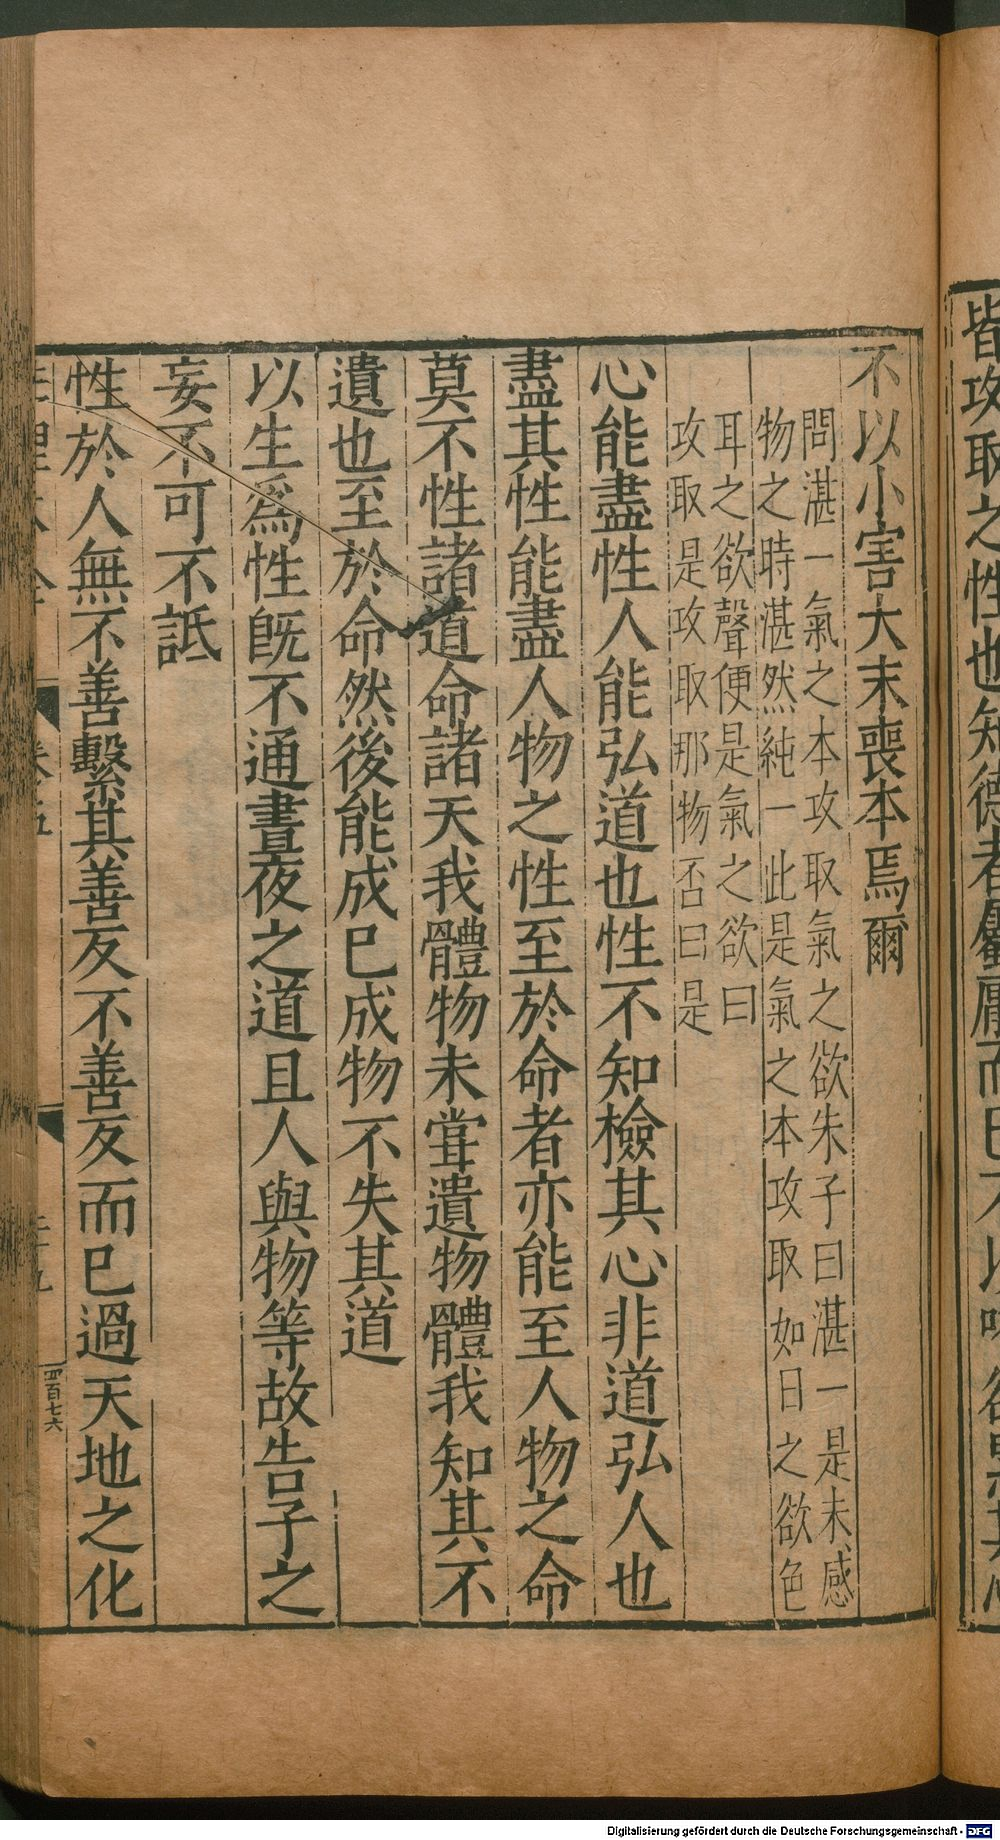 皆攻取之性也知德者屬厭而已不以嗜欲累其心
不以小害大末喪本焉爾
問湛一氣之本攻取氣之欲朱子曰湛一是未感
物之時湛然純一此是氣之本攻取如目之欲色
耳之欲聲便是氣之欲曰
攻取是攻取那物否曰是
心能盡性人能弘道也性不知檢其心非道弘人也
盡其性能盡人物之性至於命者亦能至人物之命
莫不性諸道命諸天我體物未甞遺物體我知其不
遺也至於命然後能成己成物不失其道
以生爲性旣不通晝夜之道且人與物等故告子之
妄不可不詆
性於人無不善繫其善反不善反而已過天地之化
性理大全 卷五 二十九 四百七六
Digitalisierung gefördert durch die Deutsche Forschungsgemeinschaft - DFG